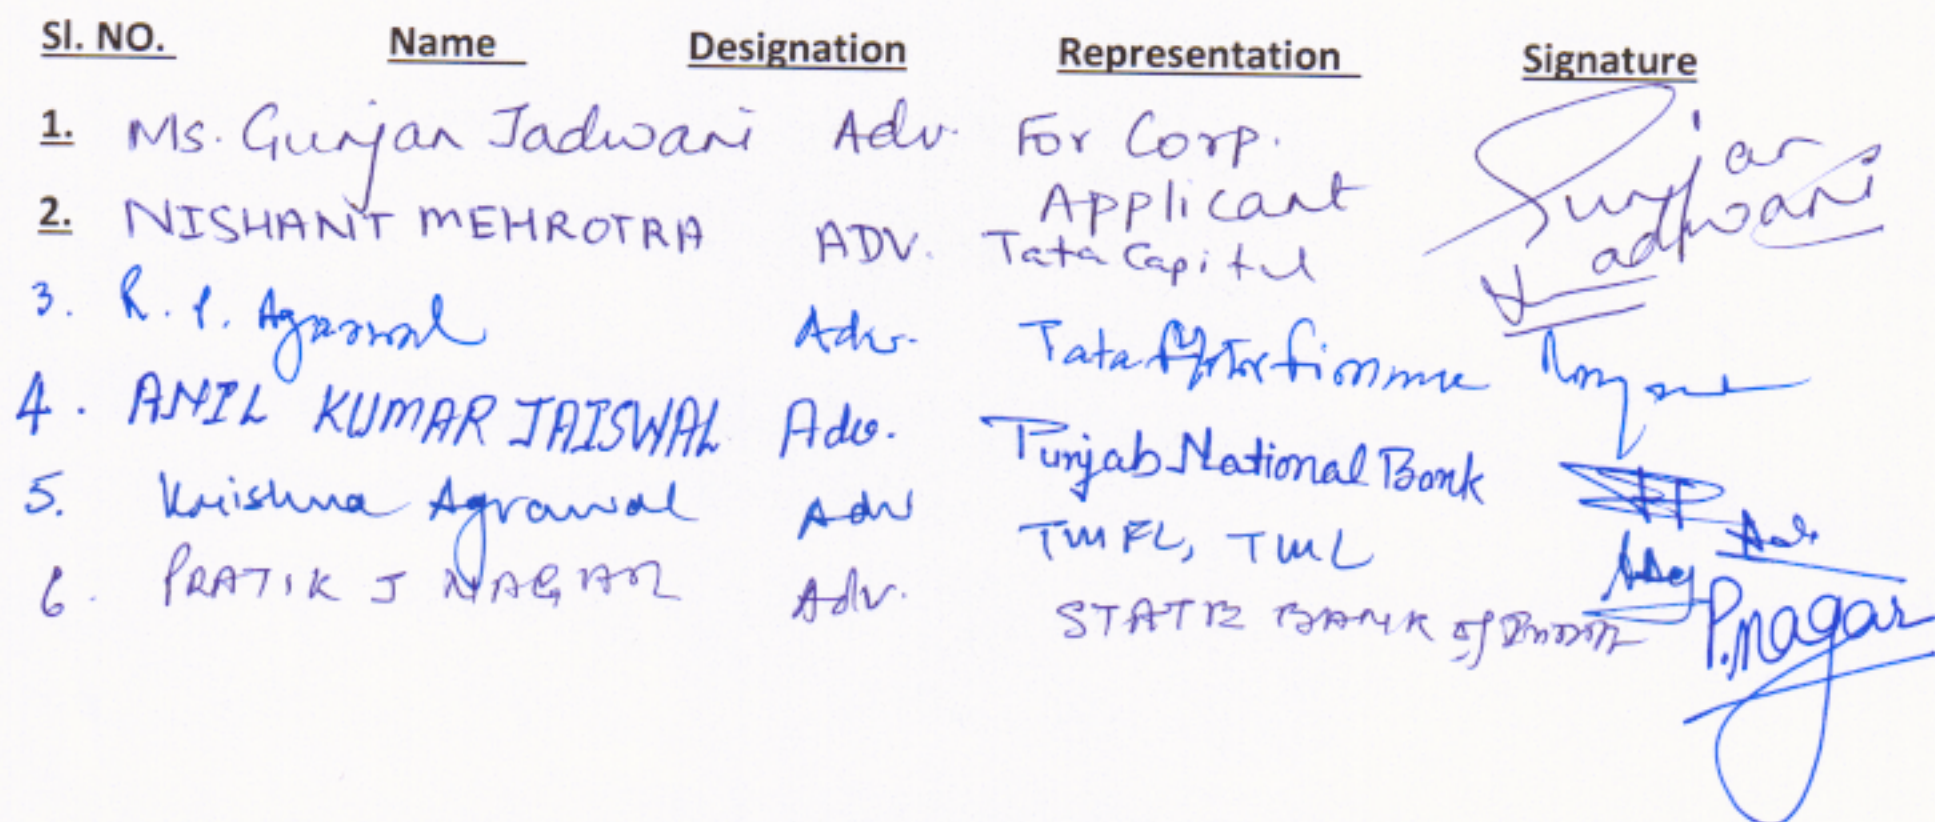 Sl. NO. Name Designation Representation Signature
1. Ms. Gunjan Jadwani Adv. For Corp. Applicant Gunjan Jadwani
2. NISHANT MEHROTRA ADV. Tata Capital
3. R. P. Agarwal Adv. Tata Motor Finance
4. ANIL KUMAR JAISWAL Adv. Punjab National Bank
5. Krishna Agrawal Adv TMFL, TML
6. PRATIK J NAGAR Adv. STATE BANK of INDIA P.nagar